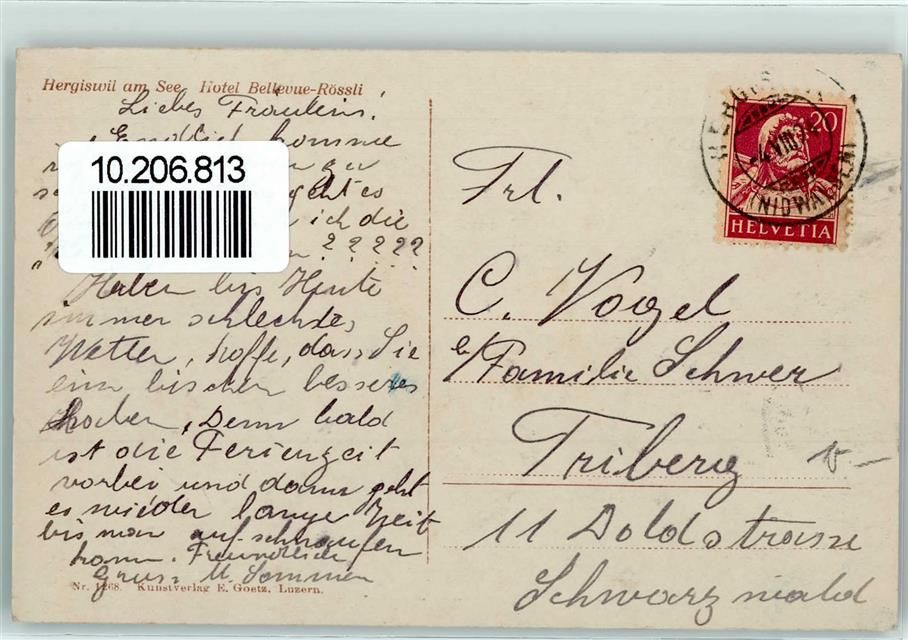 Hergiswil am See Hotel Bellevue-Rössli
Liebes Fräulein!
Endlich komme
10.206.813
geht es
ich die
? ? ? ? ?
Haben bis Heute
immer schlechtes
Wetter, hoffe, dass Sie
ein bischen besseres
haben, Denn bald
ist die Ferienzeit
vorbei und dann geht
es wieder lange Zeit
bis man aufschnaufen
kann. Freundlich
Gruss M. Sommer
Nr. 1268. Kunstverlag E. Goetz, Luzern.
20
HELVETIA
(NIDWALDEN)
Frl.
C. Vogel
b/Familie Schwer
Triberg
11 Doldstrasse
Schwarzwald